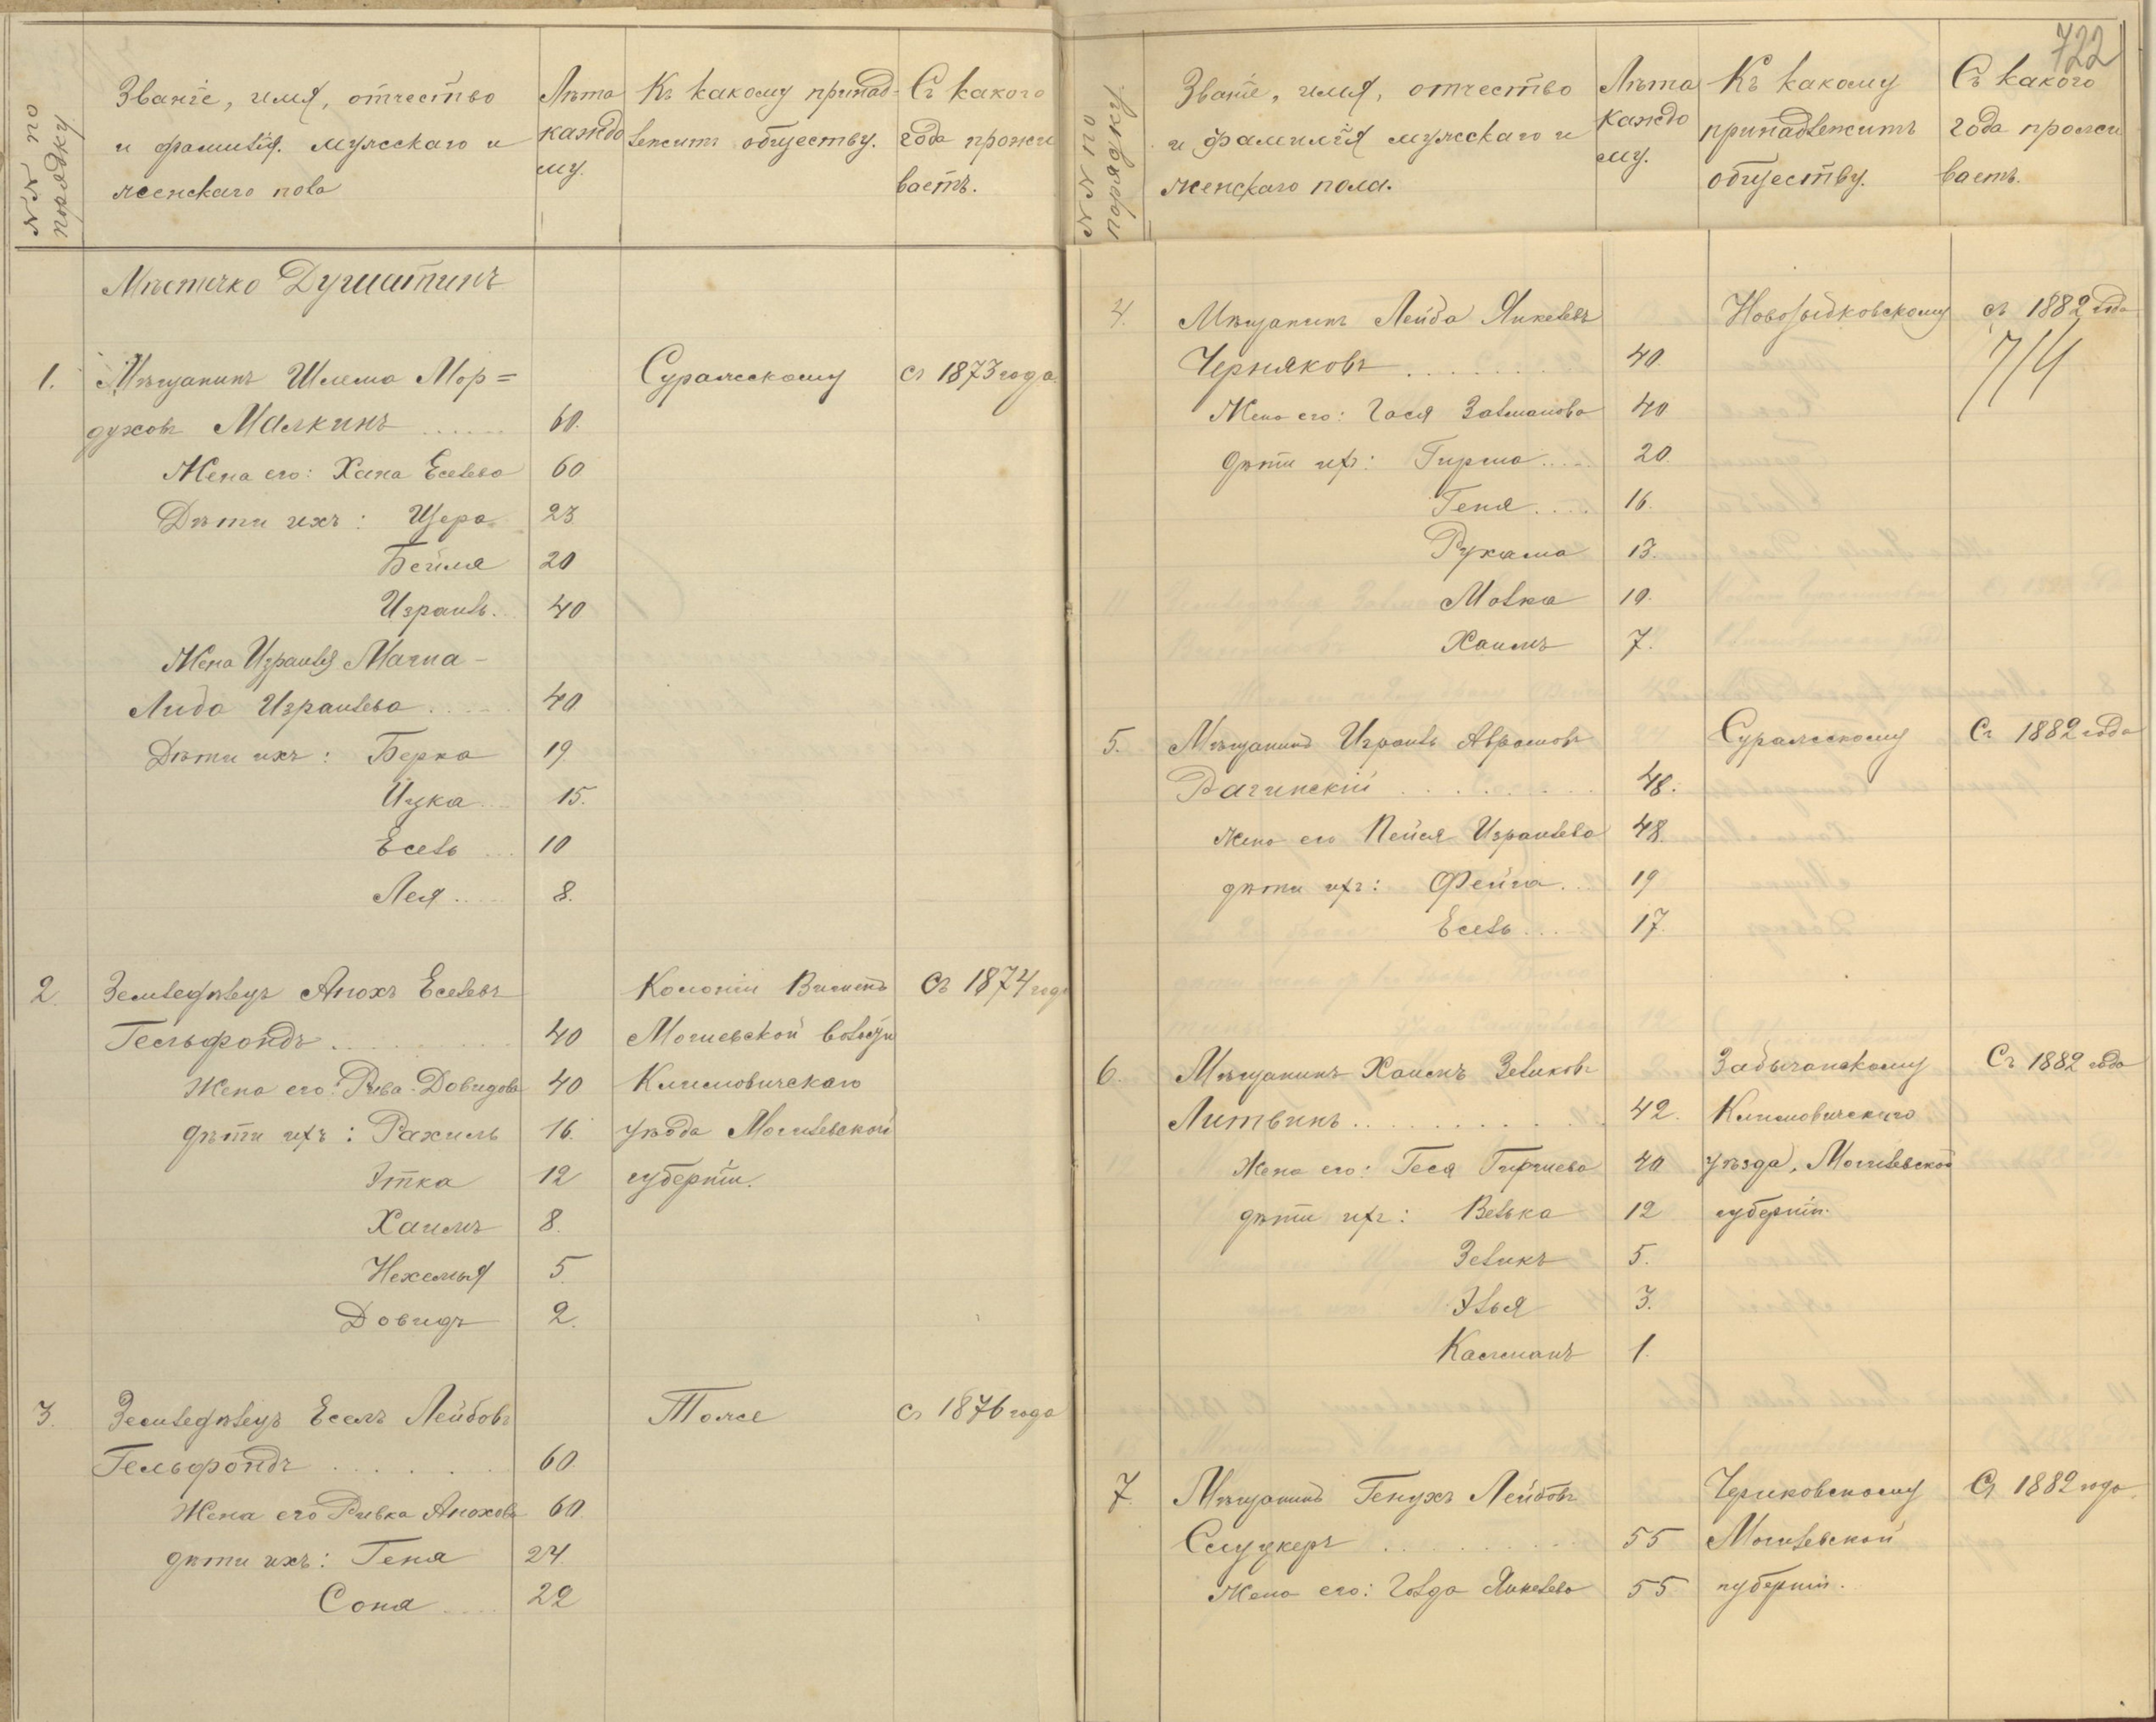 №№ по порядку
Званіе, имя, отчество
и фамилія мужскаго и
женскаго пола
Лѣта
каждо
му.
Къ какому принад-
лежитъ обществу.
Съ какого
года прожи
ваетъ.
Мѣстечко Душатинъ
1. Мѣщанинъ Шлема Мор= Суражскому съ 1873 года
духовъ Малкинъ ...... 60.
Жена его: Хана Еселева 60
Дѣти ихъ: Цера 23.
Бейля 20
Израиль. 40
Жена Израиля
Лида Израилева ..... 40
Дѣти ихъ: Берка 19
Ицка 15.
Есель ... 10
Лея ..... 8.
2. Земледѣлецъ Анохъ Еселевъ Колоніи съ 1874 года
Гельфондъ ......... 40 волости
Жена его: Рива Довидова 40 Климовичскаго
дѣти ихъ: Рахиль 16. уѣзда Могилевской
Этка 12 губерніи.
Хаимъ 8.
Нехемья 5.
Довидъ 2.
3. Земледѣлецъ Еселъ Лейбовъ Тоже съ 1876 года
Гельфондъ ...... 60.
Жена его Ривка Анохова 60.
дѣти ихъ: Геня 24.
Соня ..... 22
722
№№ по порядку.
Званіе, имя, отчество
и фамилія мужскаго и
женскаго пола.
Лѣта
каждо
му.
Къ какому
принадлежитъ
обществу.
Съ какого
года прожи
ваетъ.
4. Мѣщанинъ Лейба Янкелевъ Новозыбковскому съ 1882 года
Черняковъ ........ 40.
Жена его: Гася Залманова 40
дѣти ихъ: Гирша ..... 20.
Геня .... 16.
Рухама 13.
Молка 10.
Хаимъ 7.
5. Мѣщанинъ Израиль Аврамовъ Суражскому Съ 1882 года
Рагинскій ........ 48.
жена его Пейся Израилева 48.
дѣти ихъ: Фейга ... 19
Есель ... 17.
6. Мѣщанинъ Хаимъ Зеликовъ Забычанскому Съ 1882 года
Литвинъ ........... 42. Климовичскаго
Жена его: Геся Гиршева 40 уѣзда, Могилевской
дѣти ихъ: Велька 12 губерніи.
Зеликъ 5.
Элья 3.
Калманъ 1.
7. Мѣщанинъ Генухъ Лейбовъ Чериковскому Съ 1882 года
Слуцкеръ ......... 55 Могилевской
Жена его: Голда Янкелева 55 губерніи.